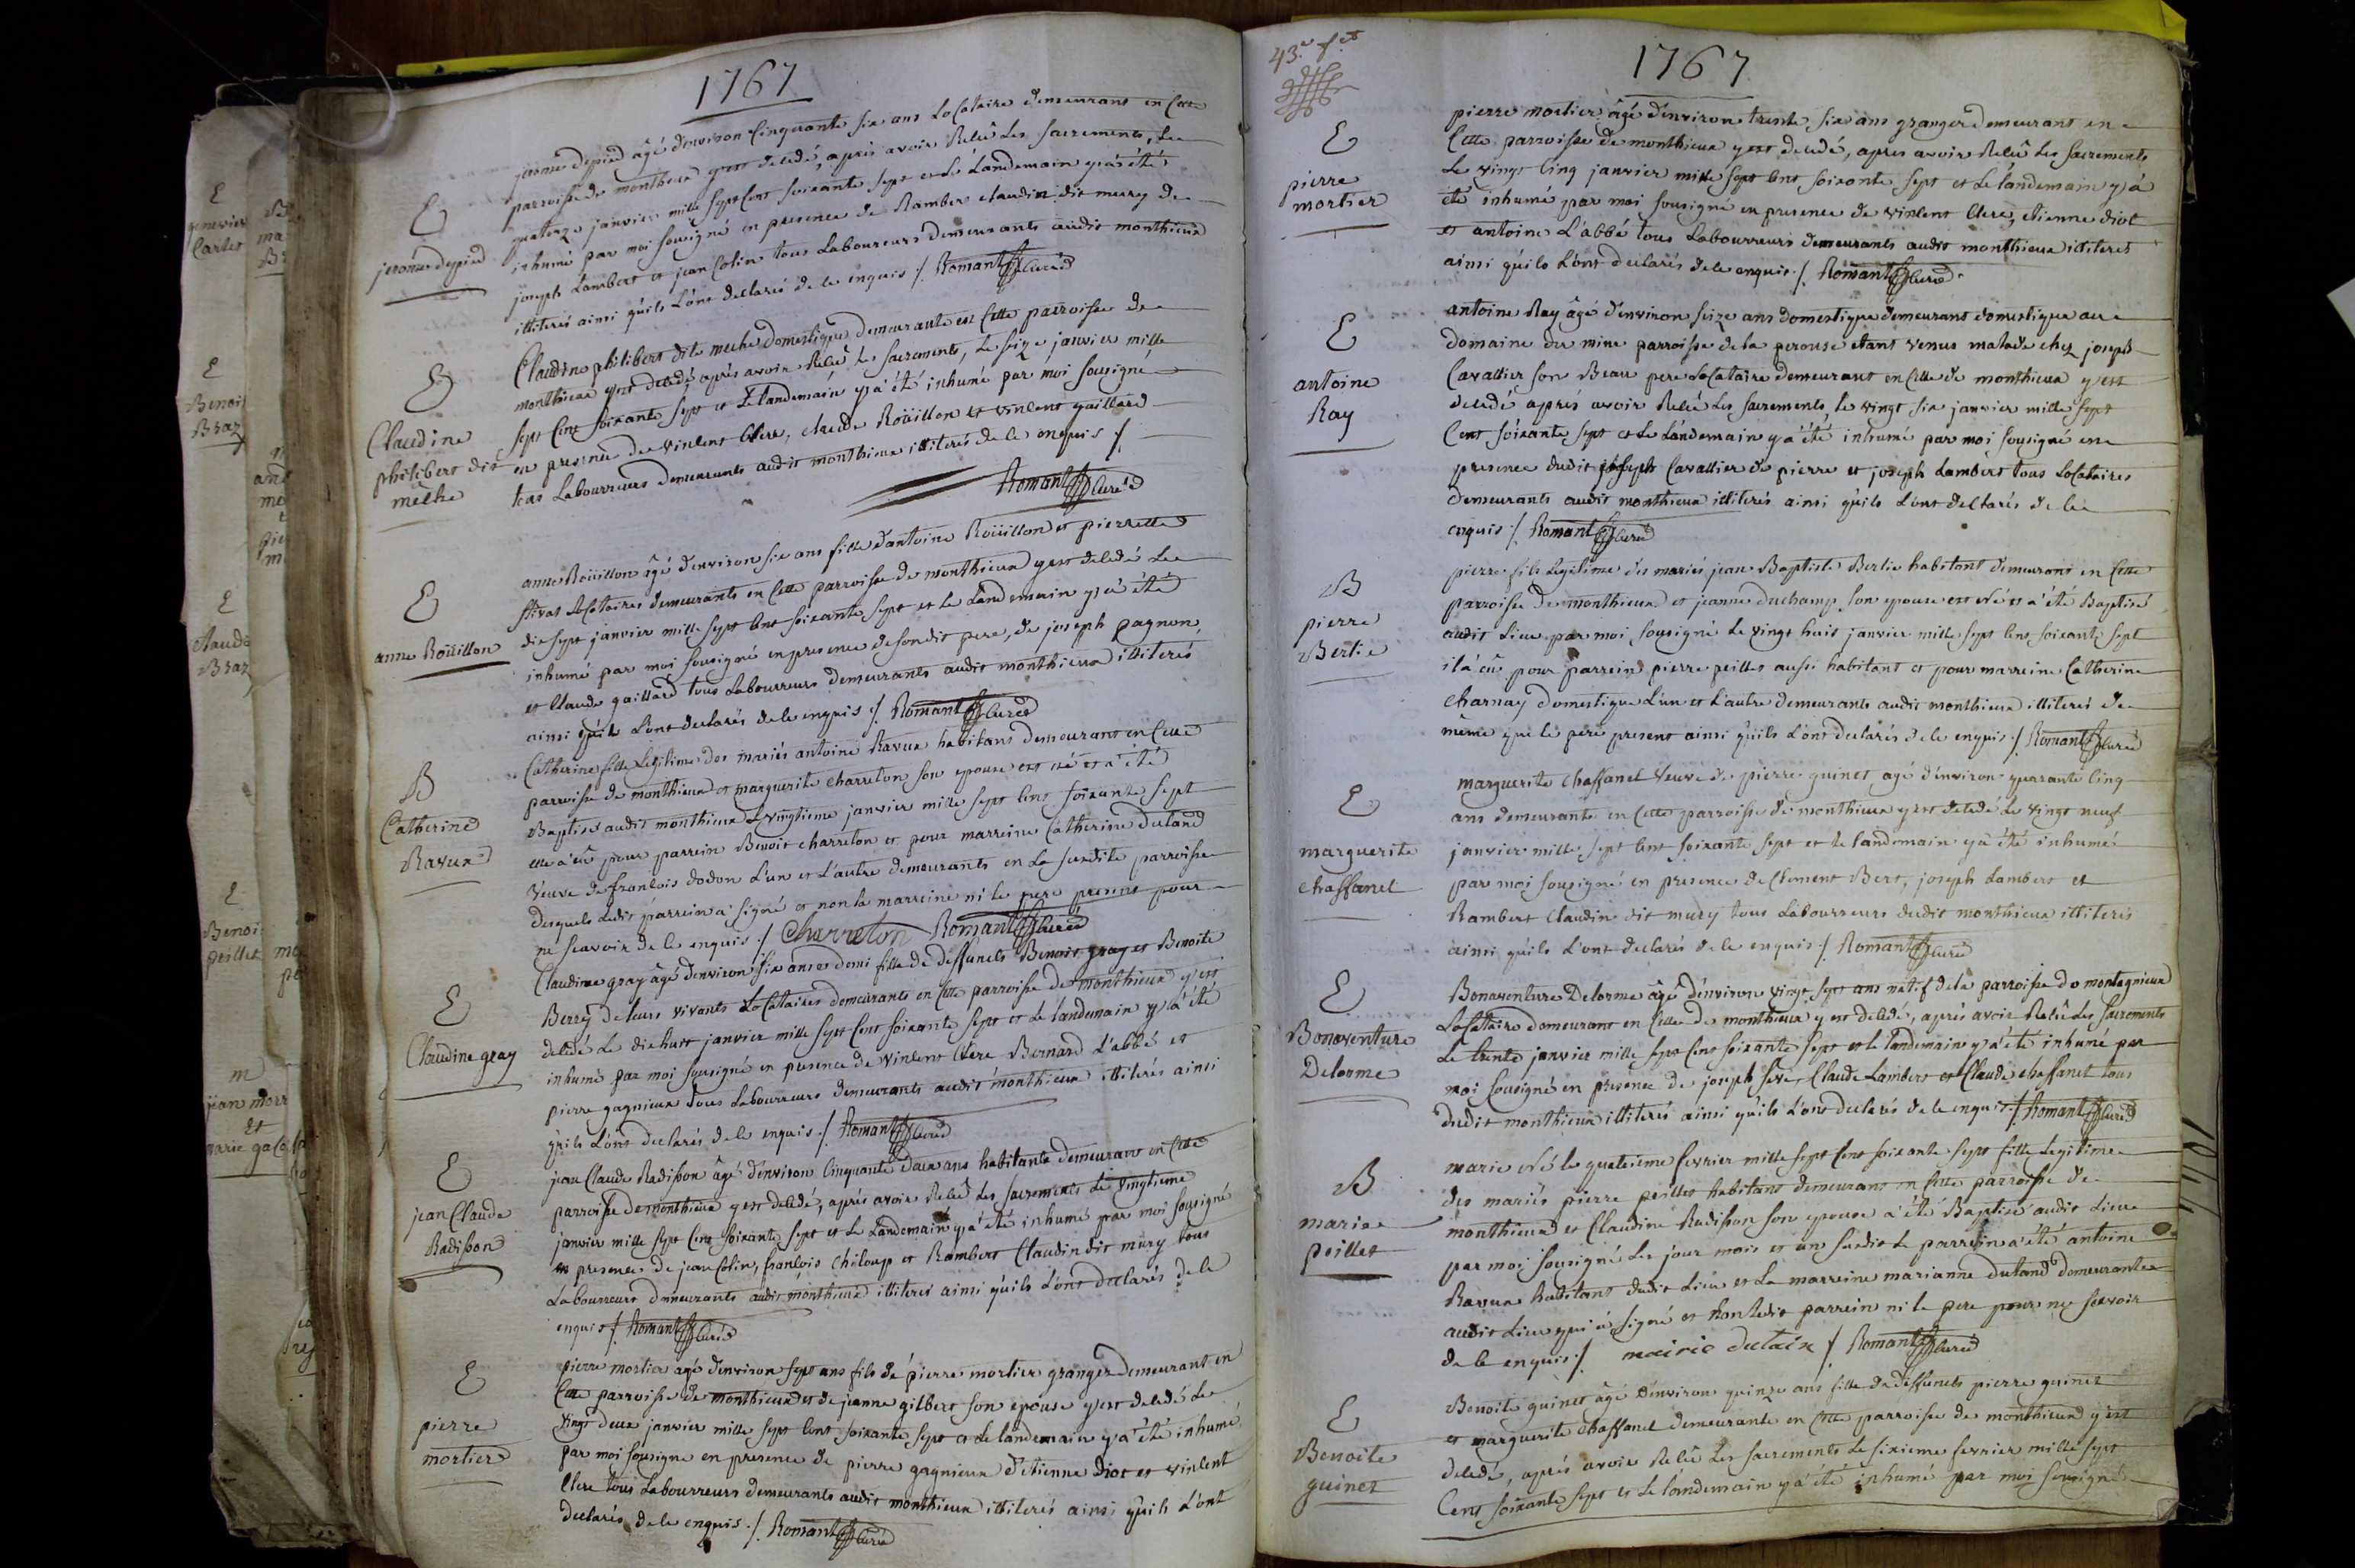 1767
E
jerome depied
jerome depied âgé d'environ Cinquante six ans LoCataire demeurant en Cette
parroisse de monthieux y est decedé, après avoir Relû Les sacrements, Le
quatorze janvier mille sept Cent soixante sept et Le Landemain y a été
inhumé par moi sousigné en presence de Rambert claudin dit mury de
joseph Lambert et jean Colin tous Laboureurs demeurants audit monthieux
illiterés ainsi qu'ils L'ont declarés de ce enquis ./. Romant Curé
E
Claudine
philibert dit
mêche
Claudine philibert dite meche domestique demeurante en Cette parroisse de
monthieux y est decedé après avoir Relû Le sacrements, Le seize janvier mille
sept Cent soixante sept et Le landemain y a été inhumé par moi sousigné
en presence de vincent Clere, claude Roüillon et vincent gaillard
tous Labourreurs demeurants audit monthieux illiterés de ce enquis ./.
Romant Curé
E
anne Roüillon
anne Roüillon âgé d'environ six ans fille d'antoine Roüillon et pierrette
LoCataires demeurants en Cette parroisse de monthieux y est decedé Le
dix sept janvier mille sept Cent soixante sept et le Landemain y a été
inhumé par moi sousigné en presence de sondit pere, de joseph gagnon
et Claude gaillard tous Labourreurs demeurants audit monthieux illiterés
ainsi qu'ils L'ont declarés de ce enquis ./. Romant Curé
B
Catherine
Ravux
Catherine fille Legitime des mariés antoine Ravux habitant demeurant en Cette
parroisse de monthieux et marguerite charreton son epouse est né et a été
Baptisé audit monthieux Le vingtieme janvier mille sept Cent soixante sept
elle a eû pour parrein Benoit charreton et pour marreine Catherine dutand
Veuve de francois dodon L'un et L'autre demeurants en La susdite parroisse
desquels Ledit parrein a signé et non la marreine ni le pere present pour
ne scavoir de ce enquis ./. Charreton Romant Curé
E
Claudine gray
Claudine gray âgé d'environ six ans et demi fille de deffuncts Benoit gray et Benoite
Berry de leurs vivants LoCataires demeurants en Cette parroisse de monthieux y est
decedé Le dixhuit janvier mille sept Cent soixante sept et Le landemain y a été
inhumé par moi sousigné en presence de vincent Clere Bernard L'abbé et
pierre gagnieux tous Labourreurs demeurants audit monthieux illiterés ainsi
qu'ils L'ont declarés de ce enquis ./. Romant Curé
E
jean Claude
Radisson
jean Claude Radisson âgé d'environ Cinquante deux ans habitante demeurant en Cette
parroisse de monthieux y est decedé, après avoir Relû Les sacrements Le vingtieme
janvier mille sept Cent soixante sept et Le Landemain y a été inhumé par moi sousigné
en presence de jean Colin, francois Chiloup et Rambert Claudin dit mury tous
Labourreurs demeurants audit monthieux illiterés ainsi qu'ils L'ont declarés de ce
enquis ./. Romant Curé
E
pierre
mortier
pierre mortier agé d'environ sept ans fils de pierre mortier granger demeurant en
Cette parroisse de monthieux et de jeanne gilbert son epouse y est decedé Le
vingt deux janvier mille sept Cent soixante sept et Le landemain y a été inhumé
par moi sousigné en presence de pierre gagnieux d'etienne Diot et vincent
Clere tous Labourreurs demeurants audit monthieux illiterés ainsi qu'ils L'ont
declarés de ce enquis ./. Romant Curé
43.e f.et
1767
E
pierre
mortier
pierre mortier âgé d'environ trente six ans granger demeurant en
Cette parroisse de monthieux y est decedé, après avoir Relû Les sacrements
Le vingt Cinq janvier mille sept Cent soixante sept et Le landemain y a
été inhumé par moi sousigné en presence de vincent Clere, etienne diot
et antoine L'abbé tous Labourreurs demeurants audit monthieux illiterés
ainsi qu'ils L'ont declarés de ce enquis ./. Romant Curé
E
antoine
Ray
antoine Ray âgé d'environ seize ans domestique demeurant domestique au
domaine du mine parroisse de la perouse etant venus malade chez joseph
Cavallier son Beau pere LoCataire demeurant en Celle de monthieux y est
decedé après avoir Relû Les sacrements, Le vingt six janvier mille sept
Cent soixante sept et Le Landemain y a été inhumé par moi sousigné en
presence dudit joseph Cavallier de pierre et joseph Lambert tous LoCataires
demeurants audit monthieux illiterés ainsi qu'ils L'ont declarés de ce
enquis ./. Romant Curé
B
pierre
Berlie
pierre fils Legitime des mariés jean Baptiste Berlie habitant demeurant en Cette
parroisse de monthieux et jeanne duchamp son epouse est né et a été Baptisé
audit Lieu par moi sousigné Le vingt huit janvier mille sept Cent soixante sept
il a eû pour parrein pierre peillet aussi habitant et pour marreine Catherine
Charnay domestique L'un et L'autre demeurants audit monthieux illiterés de
même que le pere present ainsi qu'ils L'ont declarés de ce enquis ./. Romant Curé
E
marguerite
chaffanel
marguerite Chaffanel Veuve de pierre guinet agé d'environ quarrante Cinq
ans demeurante en Cette parroisse de monthieux y est decedé Le vingt neuf
janvier mille sept Cent soixante sept et le landemain y a été inhumé
par moi sousigné en presence de Clement Bert, joseph Lambert et
Rambert Claudin dit mury tous Labourreurs dudit monthieux illiterés
ainsi qu'ils L'ont declarés de ce enquis ./. Romant Curé
E
Bonaventure
Delorme
Bonaventure Delorme âgé d'environ vingt sept ans natif de la parroisse de montagnieux
LoCataire demeurant en Celle de monthieux y est decedé, après avoir Relû Les sacrements
Le trente janvier mille sept Cent soixante sept et le landemain y a été inhumé par
moi sousigné en presence de joseph seve, Claude Lambert et Claude chaffanel tous
dudit monthieux illiterés ainsi qu'ils L'ont declarés de ce enquis ./. Romant Curé
B
marie
peillet
marie né le quatrieme fevrier mille sept Cent soixante sept fille Legitime
des mariés pierre peillet habitant demeurant en Cette parroisse de
monthieux et Claudine Radisson son epouse a été Baptisé audit Lieu
par moi sousigné Les jour mois et an susdit Le parrein a été antoine
Ravux habitant dudit Lieu et La marreine marianne dutand demeurante
audit Lieu qui a signé et non ledit parrein ni le pere pour ne scavoir
de ce enquis ./. mairie dutain ./. Romant Curé
E
Benoite
guinet
Benoite guinet âgé d'environ quinze ans fille de deffuncts pierre guinet
et marguerite Chaffanel demeurante en Cette parroisse de monthieux y est
decedé, après avoir Relû Les sacrements Le sixieme fevrier mille sept
Cent soixante sept et Le landemain y a été inhumé par moi sousigné